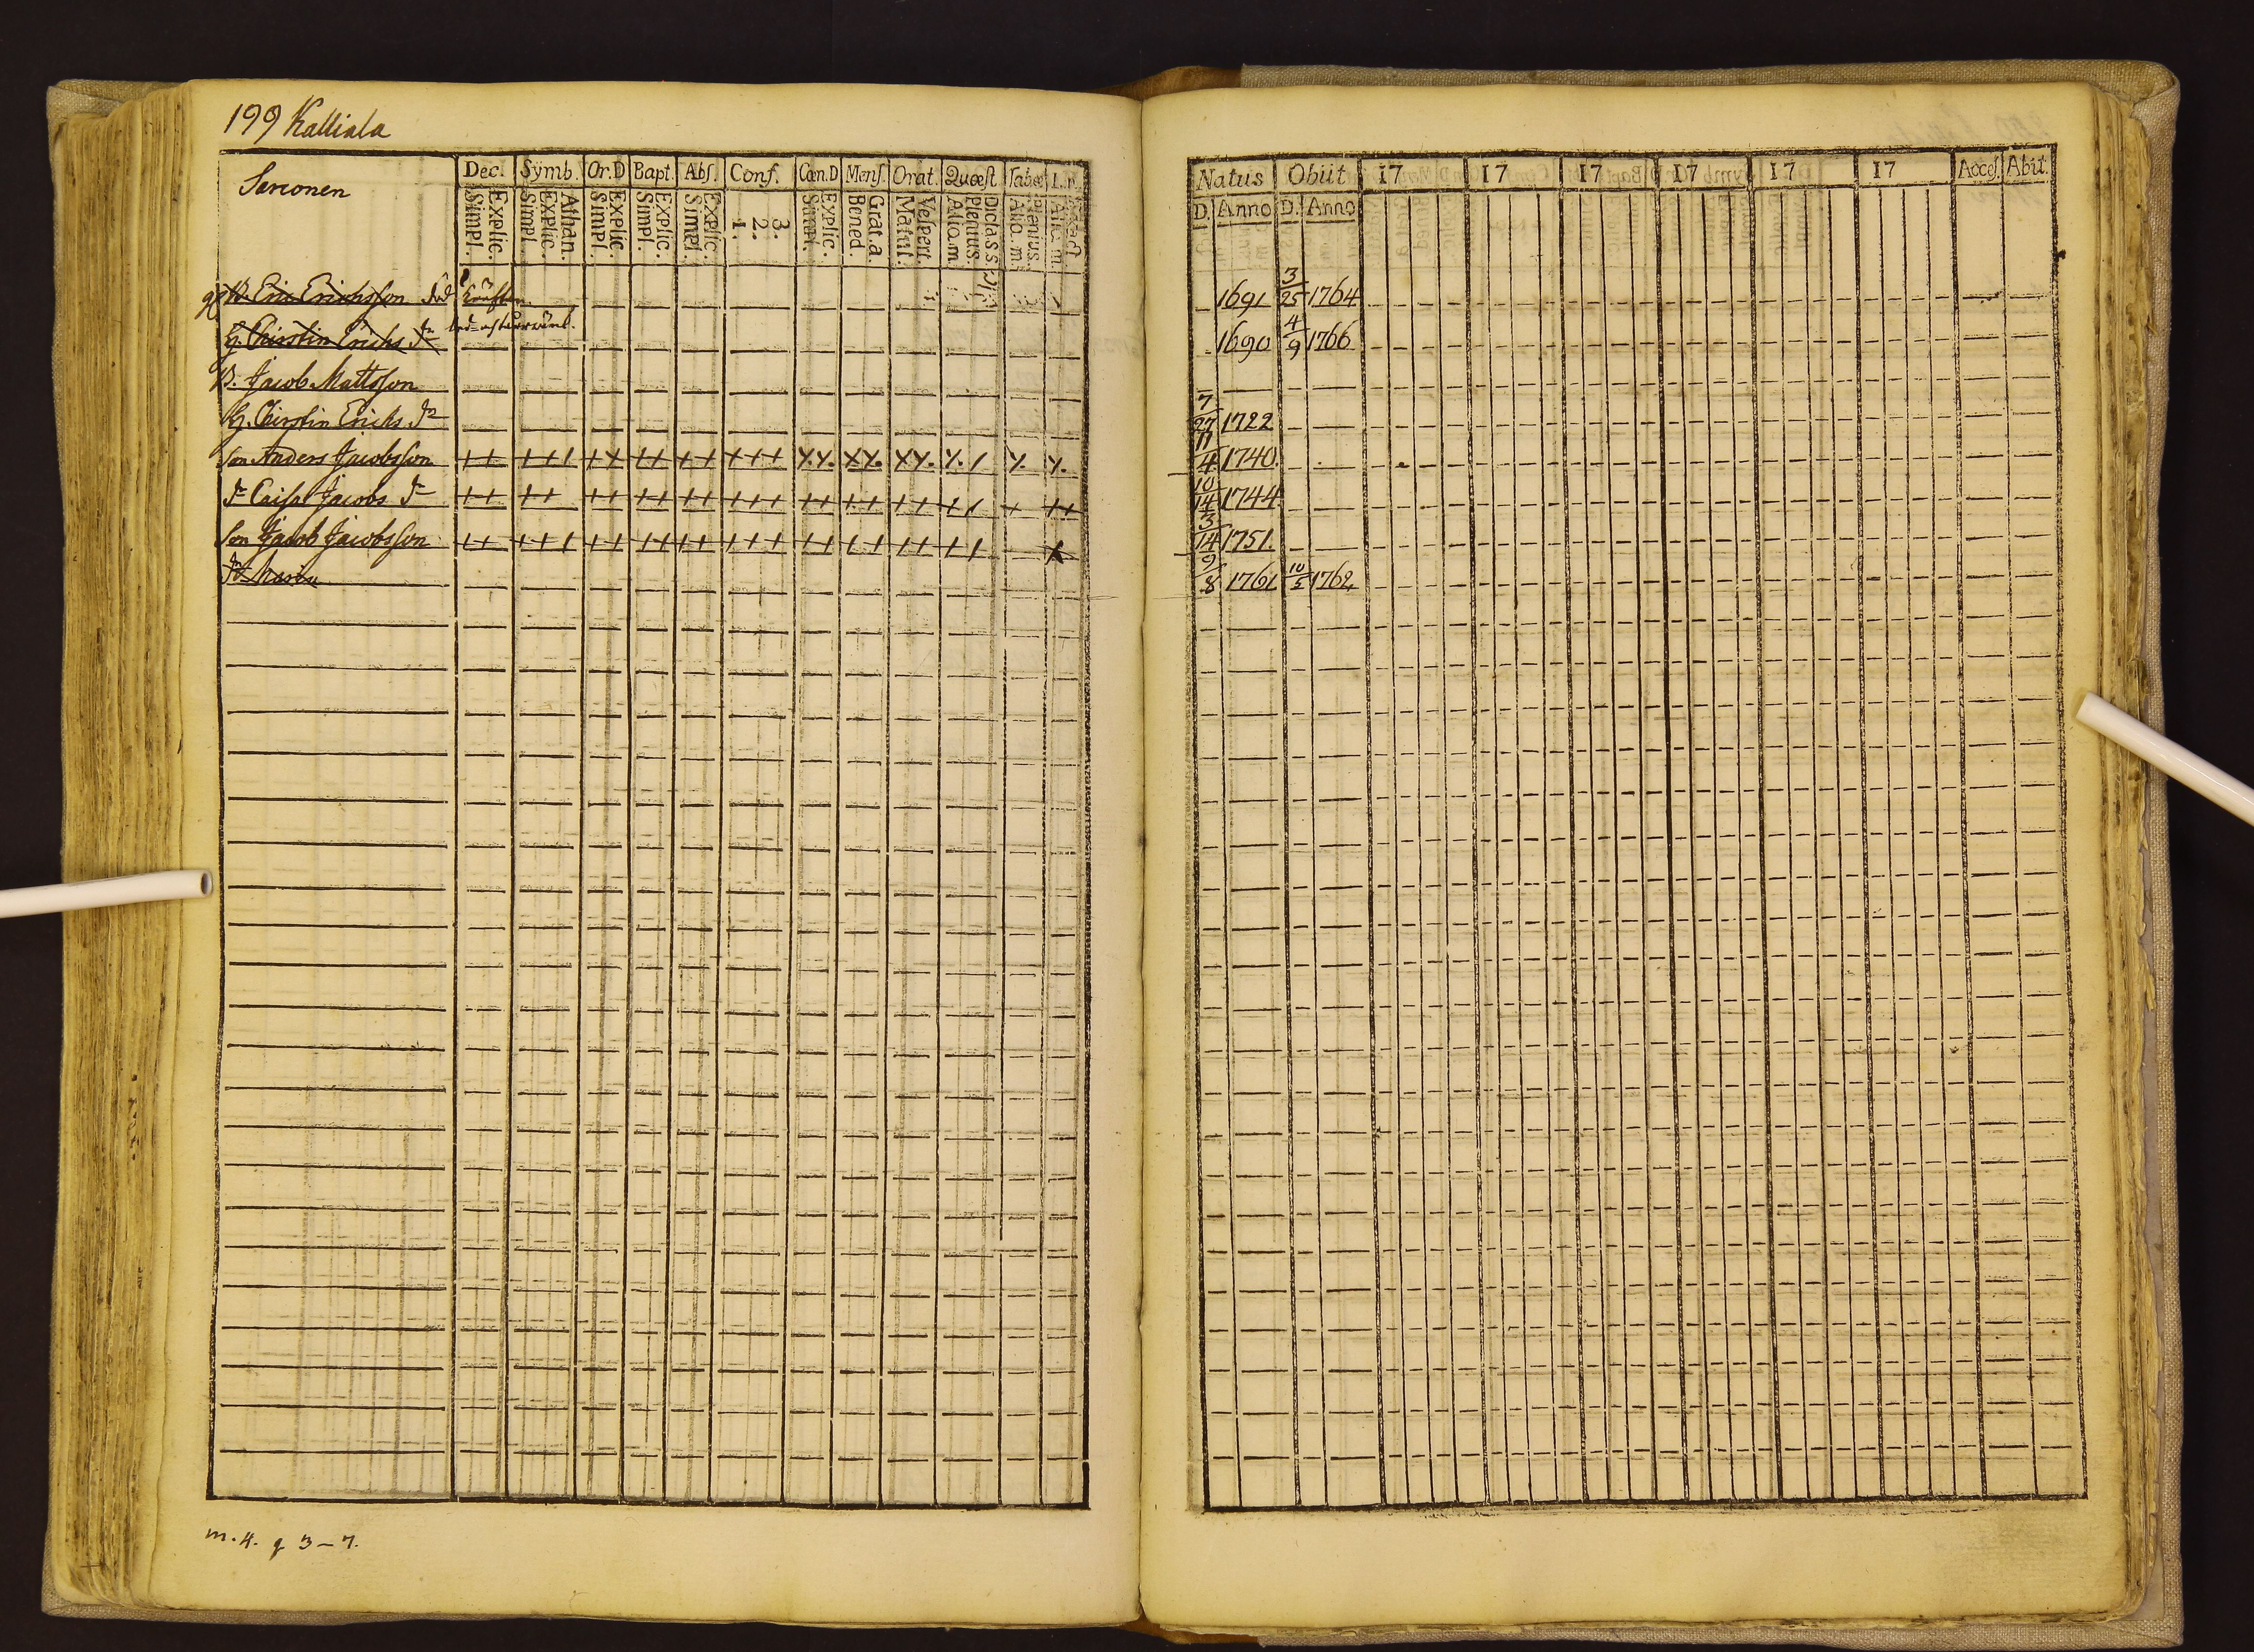 199 Kalliala
Sarconen
Dec. Symb. Or.D Bapt. Abs. Conf. Cœn.D Mens. Orat. Quæst Tabæ
Simpl. Explic. Simpl. Explic. Athan. Simpl. Explic. Simpl. Explic. Simpl. Explic. 1. 2. 3. Simpl. Explic. Bened. Grat.a. Matut. Vespert. Alio.m. Plenius. Dicta.s.s Alio.m. Plenius. Alio.m.
B. Eric Ericksson
H. Chirstin Erichs dr
B. Jacob Mattsson
H. Chirstin Erichs dr
Son Anders Jacobsson ++ +++ ++ ++ ++ +++ xx. xx. xx. x. / x. x.
dr Caisa Jacobs dr ++ ++ ++ ++ ++ +++ ++ ++ ++ ++ + ++
Son Jacob Jacobsson ++ +++ ++ ++ ++ +++ ++ ++ ++ ++ x
dr Maria
m. 4. q 3-7.
Natus Obiit 17 17 17 17 17 17 Acces. Abit.
D. Anno D. Anno
1691 3/25 1764
1690 4/9 1766
7/27 1722
11/4 1740.
10/14 1744.
3/14 1751.
9/8 1761 10/5 1762